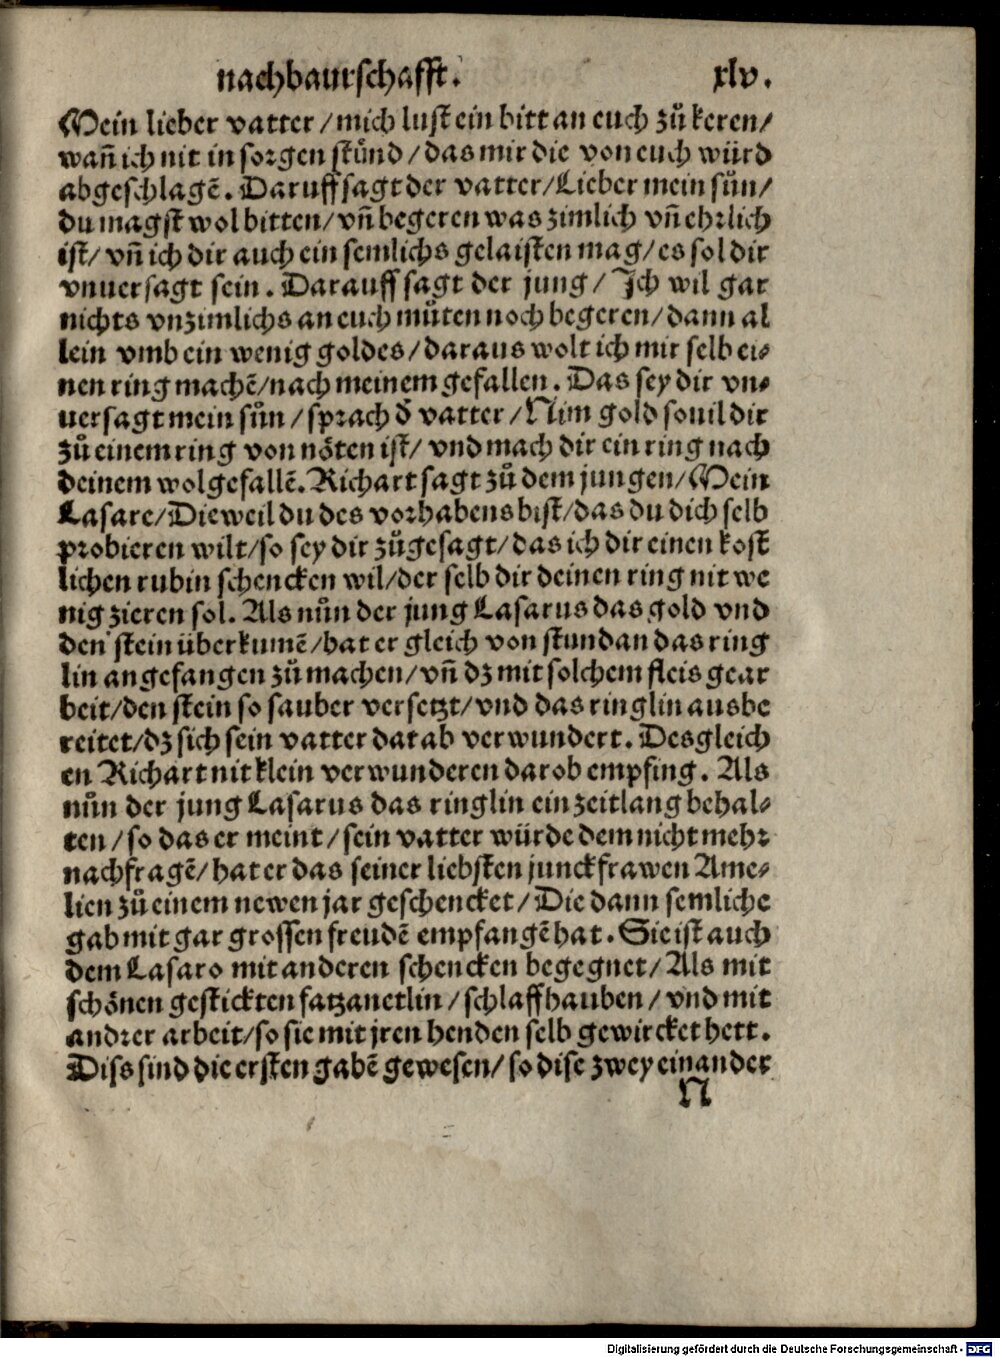 nachbaurschafft. xlv.
Mein lieber vatter / mich lust ein bitt an euch zů keren /
wañ ich nit in sorgen stůnd / das mir die von euch würd
abgeschlagẽ. Daruff sagt der vatter / Lieber mein sůn /
du magst wol bitten / vñ begeren was zimlich vñ ehrlich
ist / vñ ich dir auch ein semlichs gelaisten mag / es sol dir
vnuersagt sein. Darauff sagt der jung / Ich wil gar
nichts vnzimlichs an euch můten noch begeren / dann al
lein vmb ein wenig goldes / daraus wolt ich mir selb ei⸗
nen ring machẽ / nach meinem gefallen. Das sey dir vn⸗
uersagt mein sůn / sprach d̕ vatter / Nim gold souil dir
zů einem ring von nöten ist / vnd mach dir ein ring nach
deinem wolgefallẽ. Richart sagt zů dem jungen / Mein
Lasare / Dieweil du des vorhabens bist / das du dich selb
probieren wilt / so sey dir zůgesagt / das ich dir einen kost
lichen rubin schencken wil / der selb dir deinen ring nit we
nig zieren sol. Als nůn der jung Lasarus das gold vnd
den stein überkumẽ / hat er gleich von stund an das ring
lin angefangen zů machen / vñ dz mit solchem fleis gear
beit / den stein so sauber versetzt / vnd das ringlin ausbe
reitet / dz sich sein vatter darab verwundert. Desgleich
en Richart nit klein verwunderen darob empfing. Als
nůn der jung Lasarus das ringlin ein zeitlang behal⸗
ten / so das er meint / sein vatter würde dem nicht mehr
nachfragẽ / hat er das seiner liebsten junckfrawen Ame⸗
lien zů einem newen jar geschencket / Die dann semliche
gab mit gar grossen freudẽ empfangẽ hat. Sie ist auch
dem Lasaro mit anderen schencken begegnet / Als mit
schönen gestickten fatzanetlin / schlaffhauben / vnd mit
andrer arbeit / so sie mit jren henden selb gewircket hett.
Diss sind die ersten gabẽ gewesen / so dise zwey einander
N
Digitalisierung gefördert durch die Deutsche Forschungsgemeinschaft - DFG